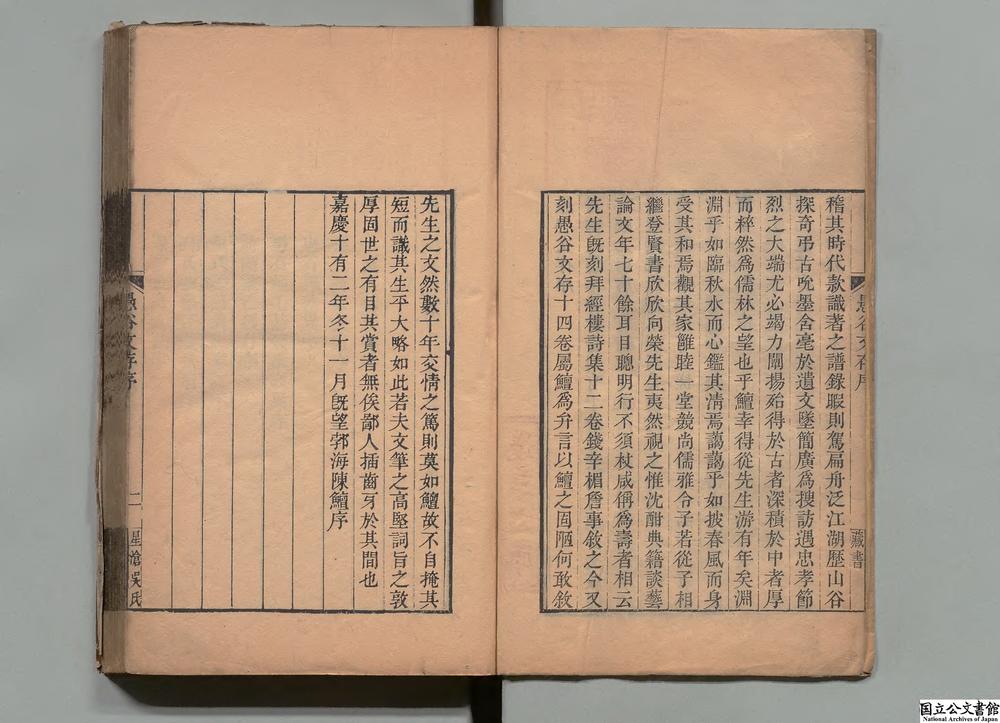 稽其時代款識著之譜錄暇則駕扁舟泛江湖歷山谷
探奇弔古吮墨含毫於遺文墜簡廣為搜訪遇忠孝節
烈之大端尤必竭力闡揚殆得於古者深積於中者厚
而粹然為儒林之望也乎鱣幸得從先生游有年矣淵
淵乎如臨秋水而心鑑其淸焉藹藹乎如披春風而身
受其和焉觀其家雝睦一堂競尚儒雅令子若從子相
繼登賢書欣欣向榮先生夷然視之惟沈酣典籍談藝
論文年七十餘耳目聰明行不須杖咸稱為壽者相云
先生旣刻拜經樓詩集十二卷錢辛楣詹事敘之今又
刻愚谷文存十四卷屬鱣為弁言以鱣之固陋何敢敘
藏書
愚谷文存序
先生之文然數十年交情之篤則莫如鱣故不自掩其
短而識其生平大略如此若夫文筆之高堅詞旨之敦
厚固世之有目共賞者無俟鄙人插齒牙於其間也
嘉慶十有二年冬十一月旣望郭海陳鱣序
愚谷文存序
二
星滄吳氏
国立公文書館
National Archives of Japan